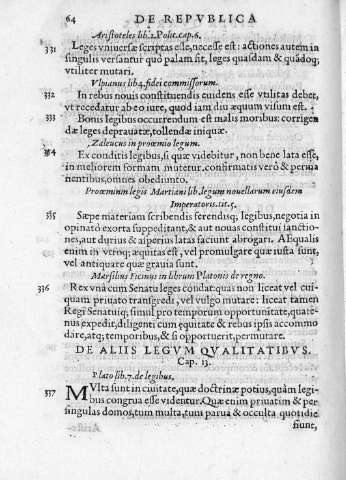 64 DE REPVBLICA
Aristoteles lib.2.Polit.cap.6.
331 Leges vniuersæ scriptas esse, necesse est: actiones autem in
singulis versantur quò palam fit, leges quasdam & quãdoq;
vtiliter mutari.
Vlpianus lib 4.fidei commissorum.
332 In rebus nouis constituendis euidens esse vtilitas debet,
vt recedatur ab eo iure, quod iam diu æquum visum est.
333 Bonis legibus occurrendum est malis moribus: corrigen
dæ leges deprauatæ, tollendæ iniquæ.
Zaleucus in proœmio legum.
334 Ex conditis legibus, si quæ videbitur, non bene lata esse,
in meliorem formam mutetur. confirmatis verò & perma
nentibus, omnes obediunto.
Proœmium legis Martiani lib. legum nouellarum eiusdem
Imperatoris. tit.5.
335 Sæpe materiam scribendis ferendisq; legibus, negotia in
opinatò exorta suppeditant, & aut nouas constitui sanctio-
nes, aut durius & asperius latas faciunt abrogari. AEqualis
enim in vtroq; æquitas est, vel promulgare quæ iusta sunt,
vel antiquare quæ grauia sunt.
Marsilius Ficinus in librum Platonis de regno.
336 Rex vnà cum Senatu leges condat: quas non liceat vel cui-
quam priuato transgredi, vel vulgo mutare: liceat tamen
Regi Senatuiq; simul pro temporum opportunitate, quate-
nus expedit, diligenti cum equitate & rebus ipsis accommo
dare, atq; temporibus, & si opportuerit, permutare.
DE ALIIS LEGVM QVALITATIBVS.
Cap. 13.
Plato lib.7. de legibus.
337 MVlta sunt in ciuitate, quæ doctrinæ potius, quàm legi-
bus congrua esse videntur. Quæ enim priuatim & per
singulas domos, tum multa, tum parua & occulta quotidie
fiunt,